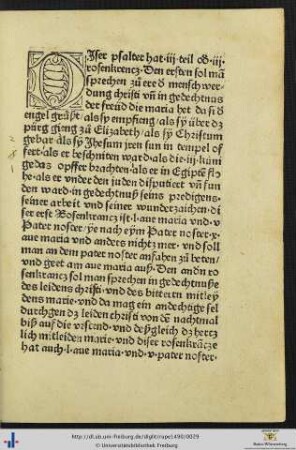 Diser psalter hat ·iij· teil oð ·iij·
rosenkrencz · Den ersten sol mā
sprechen zů ere ð mensch wer
dung christi vn̄ in gedechtnus
der freüd die maria het da si ð
engel grüßt / als sy empfing / als sy über dz
pürg gieng zů Elizabeth / als sy Christum
gebar als sy Jhesum jren sun in tempel of
fert / als er beschniten ward / als die iij küni
ge das opffer brachten / als er in Egiptē flo
he · als er vnder den juden disputiert vn̄ fun
den ward · in gedechtnuß seins predigens ·
seiner arbeit vnd seiner wunderzaichen · di
ser erst Rosenkrancz ist · l · aue maria vnd · v
Pater noster / ye nach eym Pater noster · x ·
aue maria vnd anders nicht mer · vnd soll
man an dem pater noster anfahen zů beten /
vnd geet am aue maria auß · Den andn̄ ro
senkrancz sol man sprechen in gedechtnuße
des leidens christi · vnd des bittern mitley
dens marie · vnd da mag ein andechtige sel
durchgen dz leiden christi von dē nachtmal
biß auff die vrstend · vnd deßgleich dz hertz
lich mitleiden marie · vnd diser rosenkrācze
hat auch · l · aue maria · vnd · v · pater noster ·
http://dl.ub.uni-freiburg.de/diglit/rupe1490/0029
© Universitätsbibliothek Freiburg